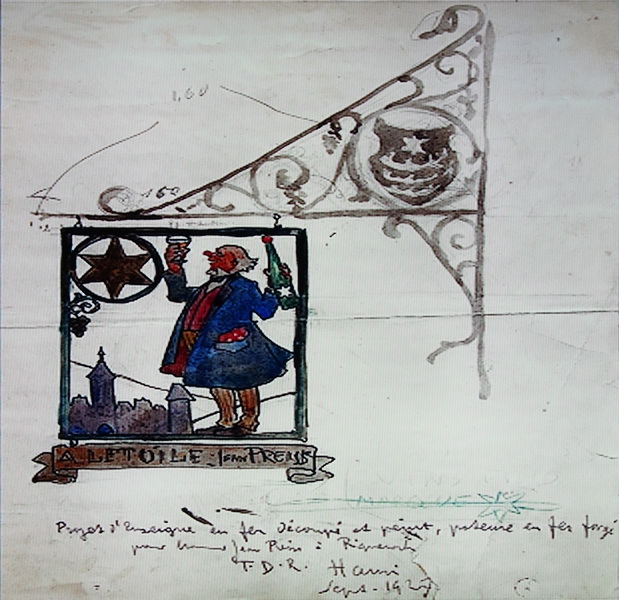 1,60
160
A L'ETOILE - Jean PREISS
MARQUE
Projet d'Enseigne en fer découpé et peint, potence en fer forgé
pour Jean Preiss à Riquewihr
T.D.R. Hansi
Sept. 192